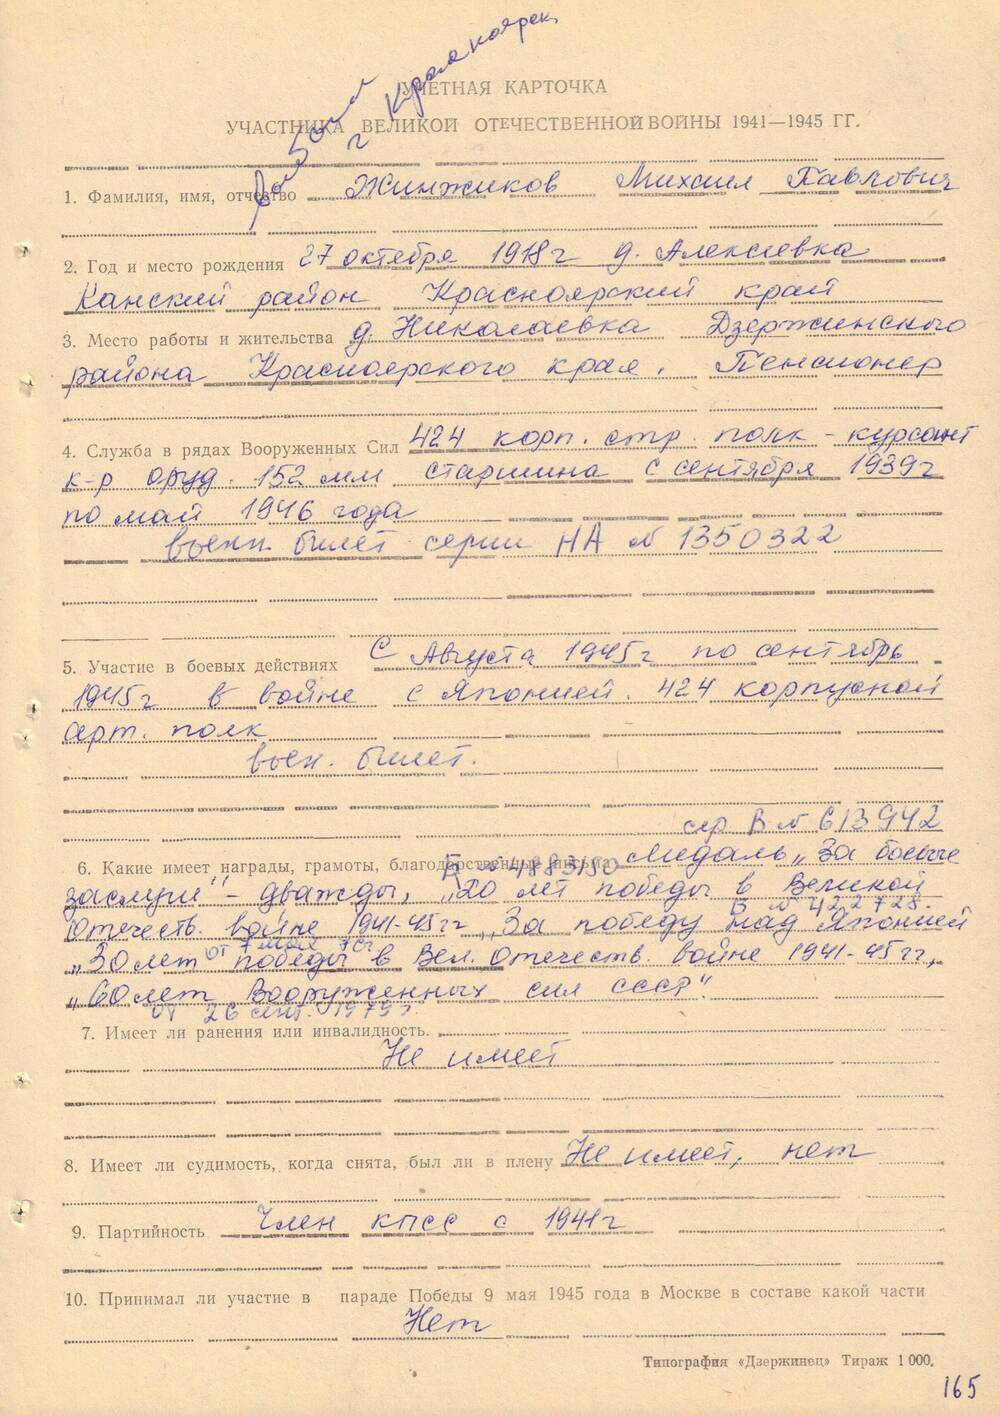 выбыл
г Красноярск
УЧЕТНАЯ КАРТОЧКА
УЧАСТНИКА ВЕЛИКОЙ ОТЕЧЕСТВЕННОЙ ВОЙНЫ 1941—1945 ГГ.
1. Фамилия, имя, отчество Жинжиков Михаил Павлович
2. Год и место рождения 27 октября 1918 г д. Алексеевка
Канский район Красноярский край
3. Место работы и жительства д. Николаевка Дзержинского
района Красноярского края. Пенсионер
4. Служба в рядах Вооруженных Сил 424 корп. стр. полк - курсант
к-р оруд. 152 мм старшина с сентября 1939 г
по май 1946 года
воен. билет серии НА № 1350322
5. Участие в боевых действиях С Августа 1945 г по сентябрь
1945 г в войне с Японией. 424 корпусной
арт. полк
воен. билет.
сер В № 613942
6. Какие имеет награды, грамоты, благодарственные письма Медаль „За боевые
Б № 4883150
заслуги" - дважды, „20 лет победы в Великой
Б № 422728.
Отечеств. войне 1941-45 гг „За победу над Японией
от 7 мая 76 г
„30 лет победы в Вел. Отечеств. войне 1941-45 гг.,
„60 лет Вооруженных сил СССР".
от 26 сент. 1979 г.
7. Имеет ли ранения или инвалидность.
Не имеет
8. Имеет ли судимость, когда снята, был ли в плену Не имеет, нет
9. Партийность Член КПСС с 1941 г
10. Принимал ли участие в параде Победы 9 мая 1945 года в Москве в составе какой части
Нет
Типография «Дзержинец» Тираж 1 000.
165